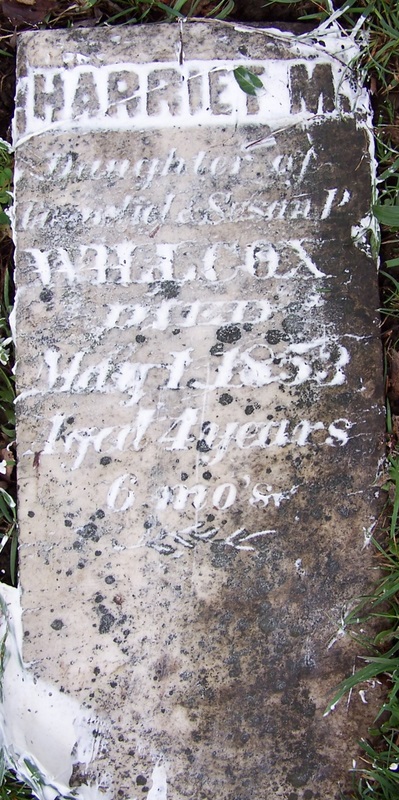 HARRIET M.
Daughter of
& Susan P.
WILLCOX
DIED
May 1, 1853
Aged 4 years
6 mo's.